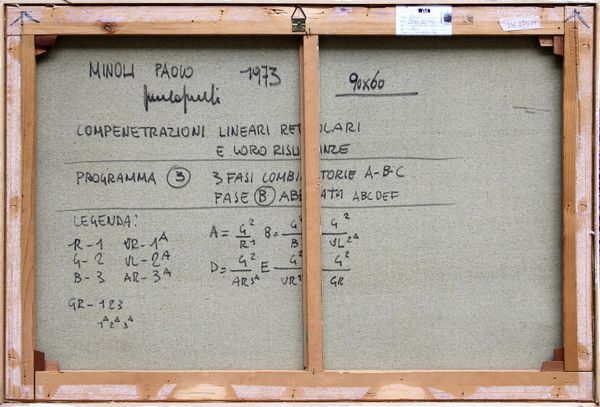 MINOLI PAOLO 1973 90x60
COMPENETRAZIONI LINEARI RE OLARI
E LORO RISU NZE
PROGRAMMA 3 3 FASI COMBI TORIE A-B-C
FASE B AB ATA ABCDEF
LEGENDA:
R-1 VR-1Δ
G-2 VL-2Δ
B-3 AR-3Δ
GR-123
1Δ2Δ3Δ
A= G²/R1 B= G²/B G²/VL2Δ
D= G²/AR3Δ E G²/VR1 G²/GR